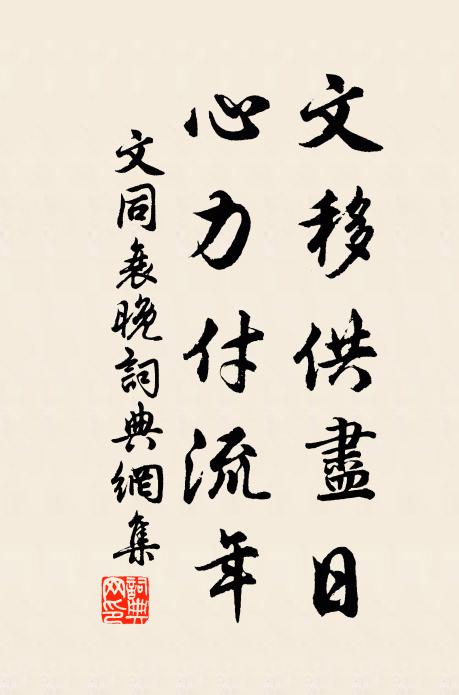 文移供盡日
心力付流年
文同衰晚詞典網集
詞典網印